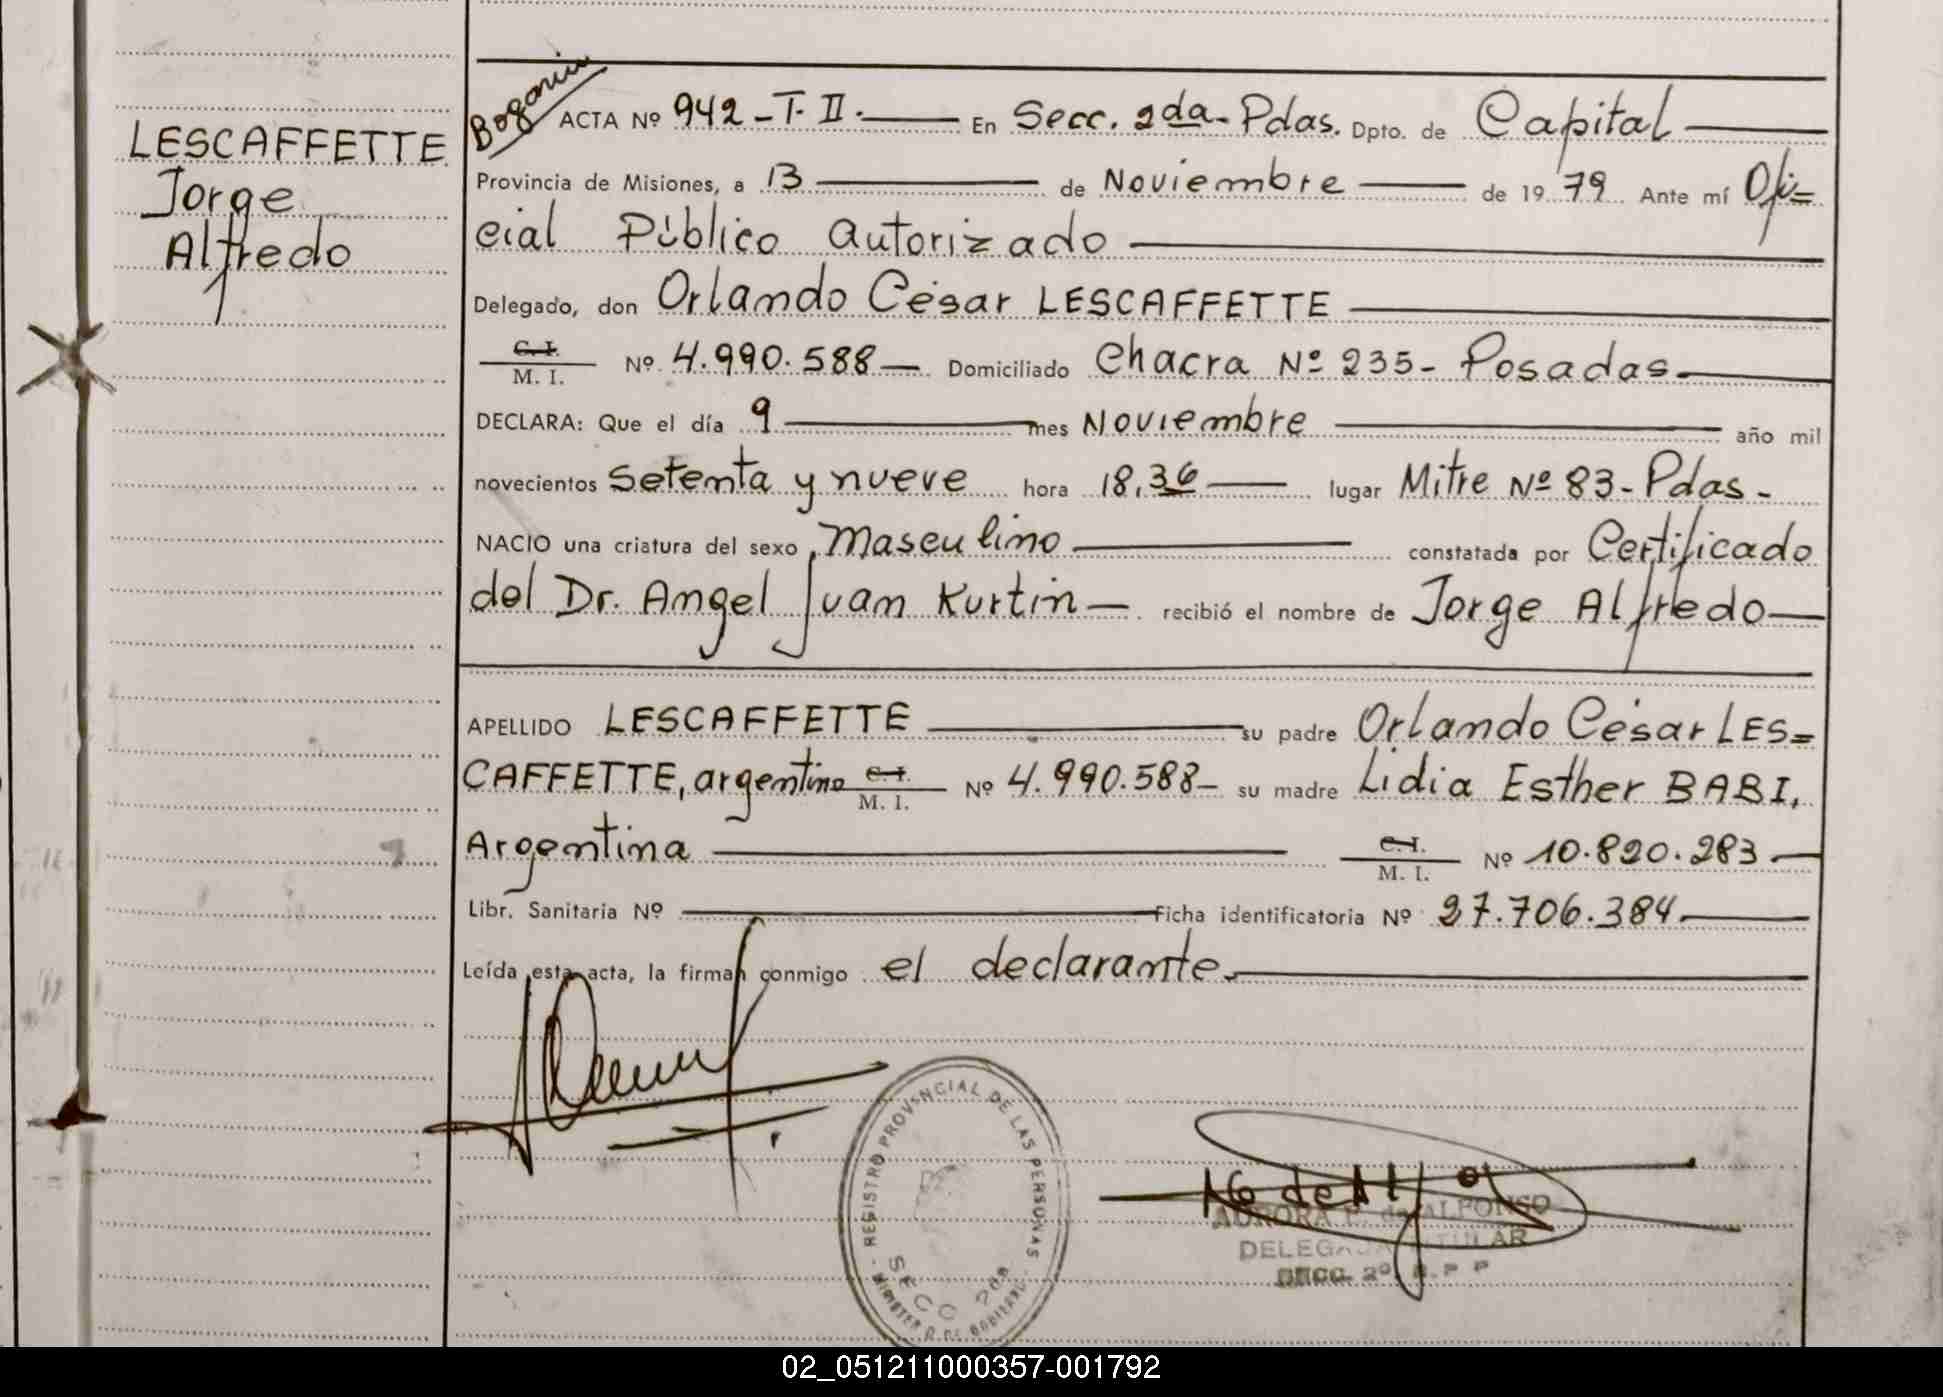 LESCAFFETTE
Jorge
Alfredo
ACTA Nº 942 - T. II. En Secc. 2da. Pdas. Dpto. de Capital
Provincia de Misiones, a 13 de Noviembre de 1979 Ante mí Ofi=
cial Público Autorizado
Delegado, don Orlando César LESCAFFETTE
C. I. M. I. Nº 4.990.588 Domiciliado Chacra Nº 235 - Posadas
DECLARA: Que el día 9 mes Noviembre año mil
novecientos setenta y nueve hora 18,36 lugar Mitre Nº 83 - Pdas -
NACIO una criatura del sexo Masculino constatada por Certificado
del Dr. Angel Juan Kurtin recibió el nombre de Jorge Alfredo
APELLIDO LESCAFFETTE su padre Orlando César LES=
CAFFETTE, argentino C. I. M. I. Nº 4.990.588 - su madre Lidia Esther BABI,
Argentina C. I. M. I. Nº 10.820.283
Libr. Sanitaria Nº Ficha identificatoria Nº 27.706.384
Leída esta acta, la firman conmigo el declarante
REGISTRO PROVINCIAL DE LAS PERSONAS
SECC 2da
AURORA de ALFONSO
DELEGADA TITULAR
SECC. 2º
02_051211000357-001792